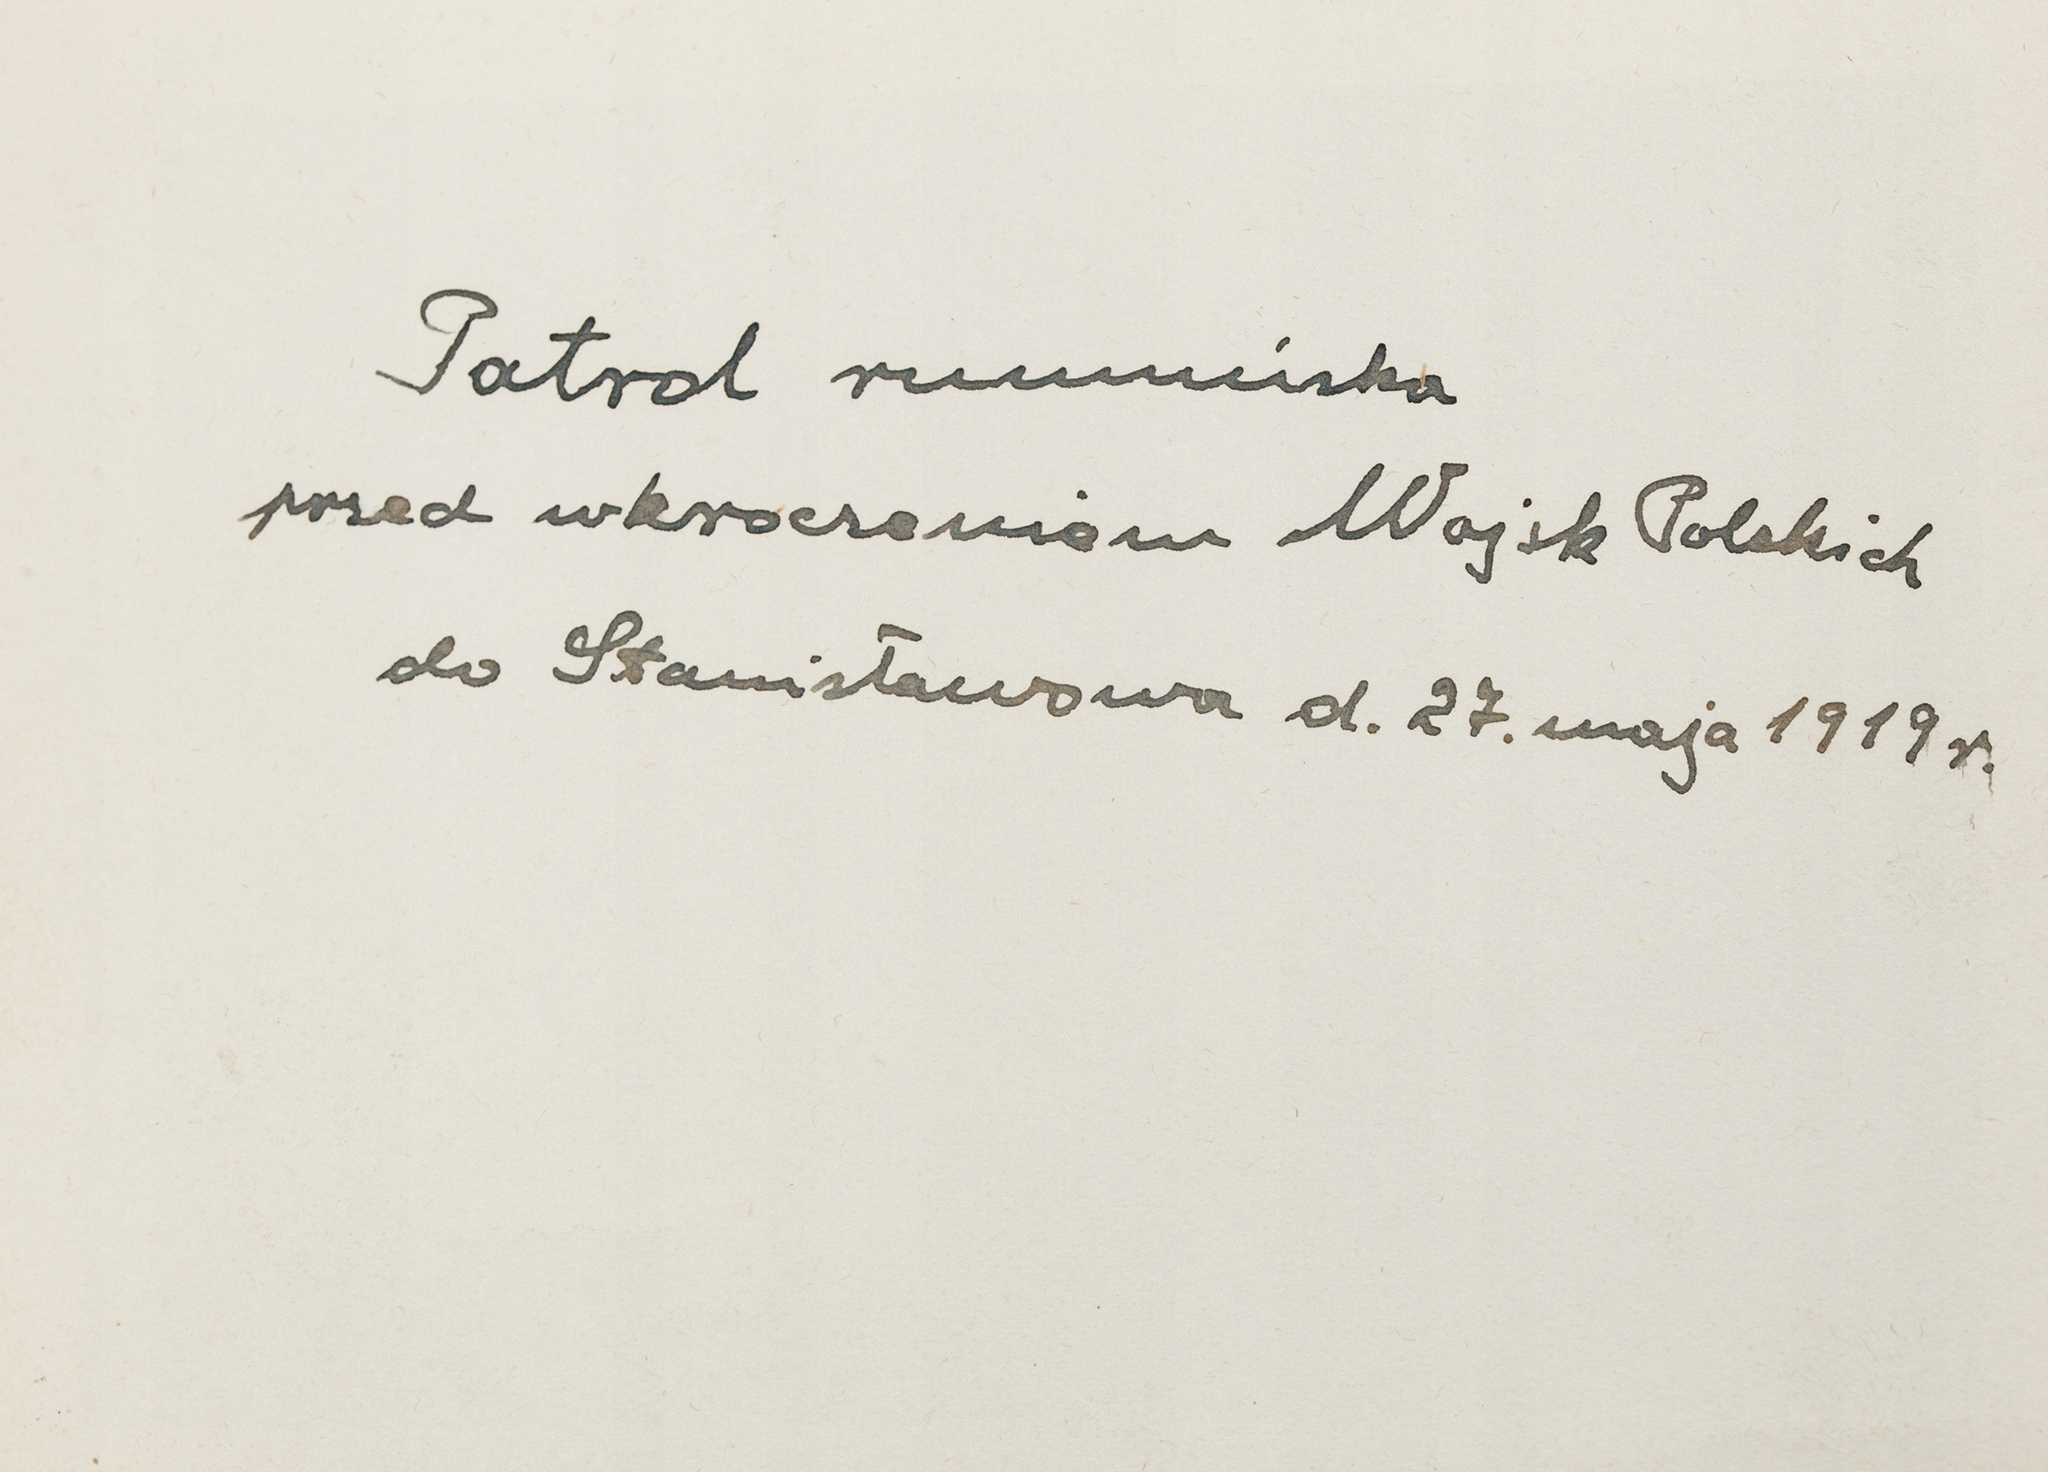 Patrol rumuńska
przed wkroczeniem Wojsk Polskich
do Stanisławowa d. 27. maja 1919 r.